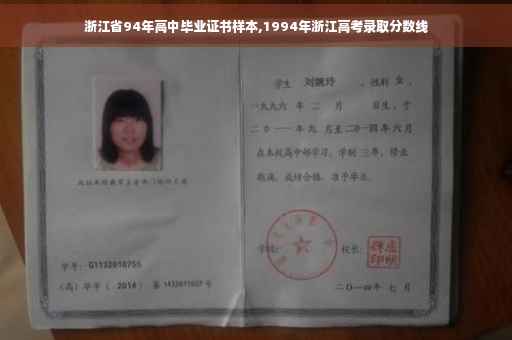 浙江省94年高中毕业证书样本,1994年浙江高考录取分数线
学生 刘婉玲 ,性别 女 ,
一九九六 年 二 月 日生,于
二〇一一年九 月至二〇一四年六月
在本校高中部学习,学制 三年,修业
期满,成绩合格,准予毕业。
学号: G1132010755
学校:
校长:
(高)毕字( 2014 )第 1432011027 号
二〇一四年 七 月